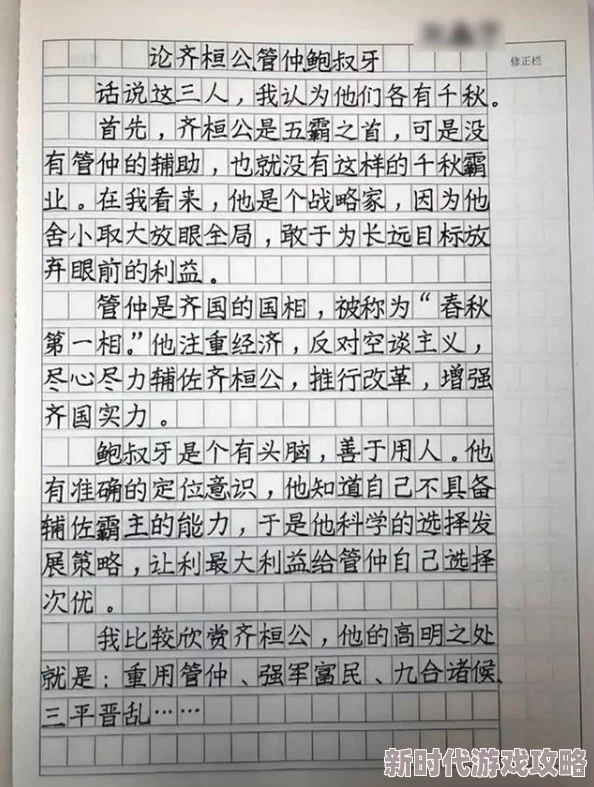 修正栏
论齐桓公管仲鲍叔牙
话说这三人，我认为他们各有千秋。
首先，齐桓公是五霸之首，可是没
有管仲的辅助，也就没有这样的千秋霸
业。在我看来，他是个战略家，因为他
舍小取大放眼全局，敢于为长远目标放
弃眼前的利益。
管仲是齐国的国相，被称为“春秋
第一相。”他注重经济，反对空谈主义，
尽心尽力辅佐齐桓公，推行改革，增强
齐国实力。
鲍叔牙是个有头脑，善于用人。他
有准确的定位意识，他知道自己不具备
辅佐霸主的能力，于是他科学的选择发
展策略，让利最大利益给管仲自己选择
次优。
我比较欣赏齐桓公，他的高明之处
就是：重用管仲、强军富民、九合诸候、
三平晋乱……
新时代游戏攻略